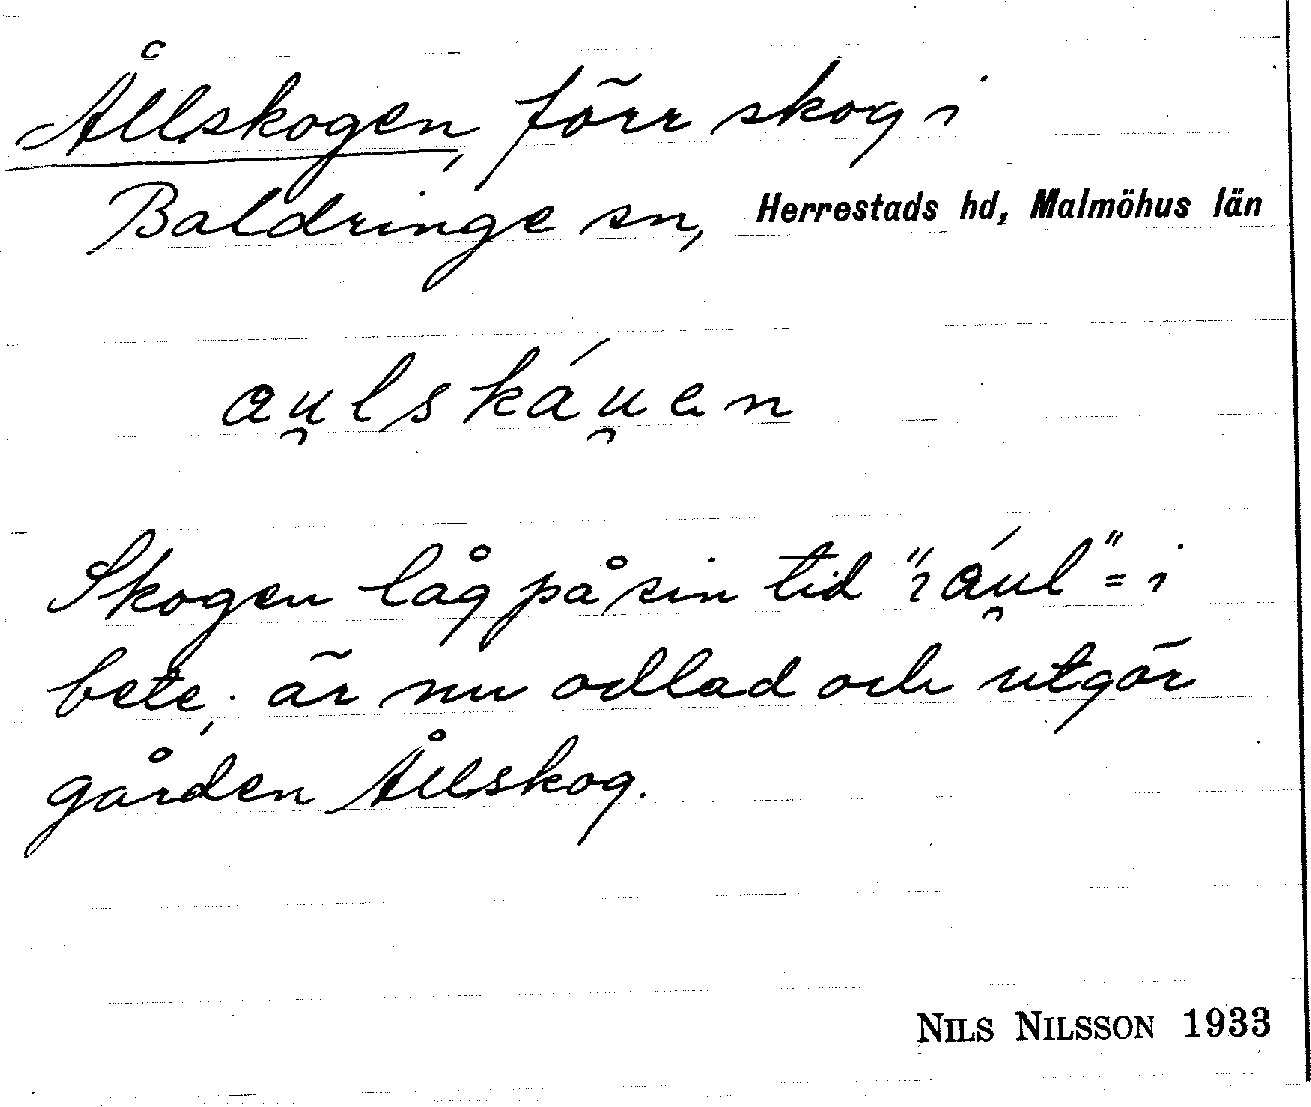 Ållskogen, förr skog i
Baldringe sn, Herrestads hd, Malmöhus län
au̯lskáu̯en
Skogen låg på sin tid "i áu̯l" = i
bete; är nu odlad och utgör
gården Ållskog.
NILS NILSSON 1933